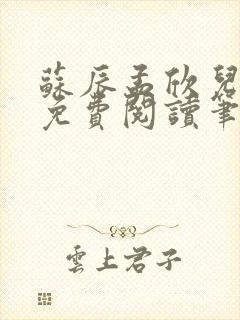 蘇辰孟欣兒
免費閱讀筆
雲上君子